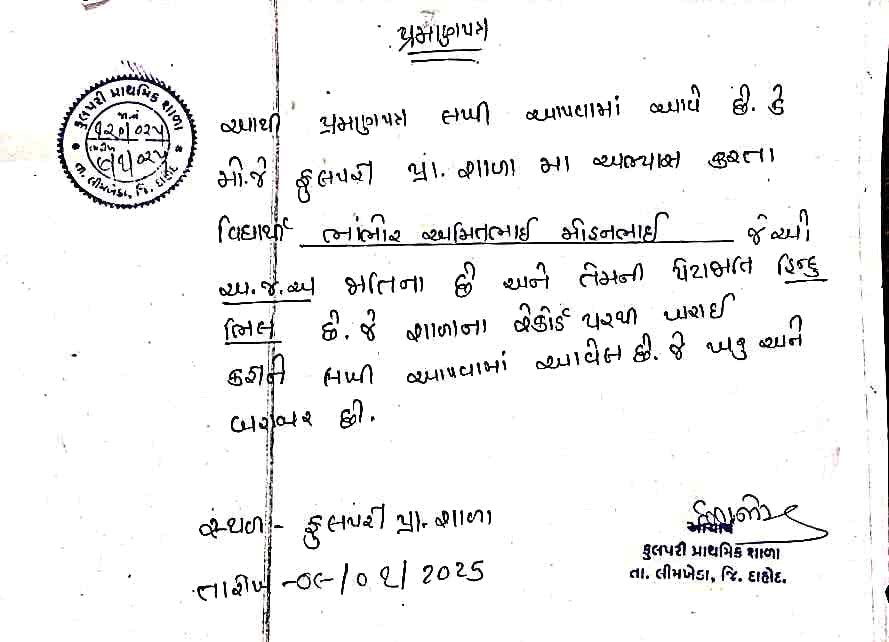 પ્રમાણપત્ર
ફુલપરી પ્રાથમિક શાળા
જા.નં
૧૨૦/૦૨૫
તારીખ
તા. લીમખેડા, જિ. દાહોદ
આથી પ્રમાણપત્ર લખી આપવામાં આવે છે. કે
મી.જે ફુલપરી પ્રા. શાળા મા અભ્યાસ કરતા
વિદ્યાર્થી ભાંભોર અમિતભાઈ મોહનભાઈ જેઓ
અ.જ.જા જાતિના છે અને તેમની પેટાજાતિ હિન્દુ
ભિલ છે. જે શાળાના રેકોર્ડ પરથી ખરાઈ
કરીને લખી આપવામાં આવેલ છે. જે ખરૂ અને
બરાબર છે.
સ્થળ - ફુલપરી પ્રા. શાળા
તારીખ - ૦૯/૦૧/2025
આચાર્ય
ફુલપરી પ્રાથમિક શાળા
તા. લીમખેડા, જિ. દાહોદ.